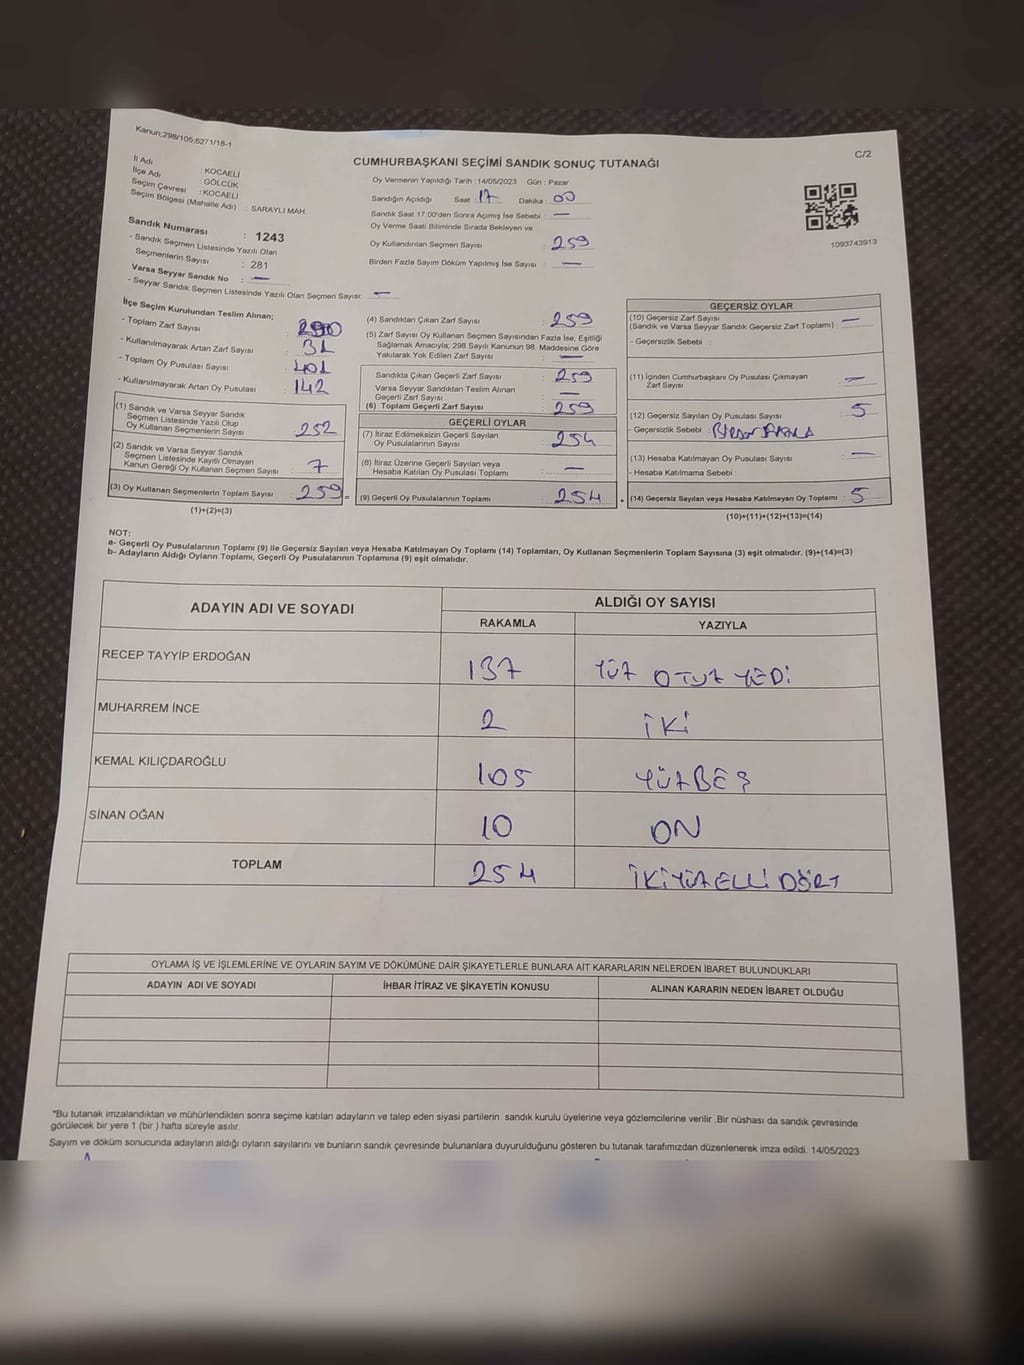 Kanun:298/105,6271/18-1
C/2
CUMHURBAŞKANI SEÇİMİ SANDIK SONUÇ TUTANAĞI
İl Adı : KOCAELİ
İlçe Adı : GÖLCÜK
Seçim Çevresi : KOCAELİ
Seçim Bölgesi (Mahalle Adı) : SARAYLI MAH.
Sandık Numarası : 1243
- Sandık Seçmen Listesinde Yazılı Olan
Seçmenlerin Sayısı : 281
Varsa Seyyar Sandık No : —
- Seyyar Sandık Seçmen Listesinde Yazılı Olan Seçmen Sayısı: —
Oy Vermenin Yapıldığı Tarih :14/05/2023 Gün : Pazar
Sandığın Açıldığı Saat 17 Dakika 00
Sandık Saat 17:00'den Sonra Açımış İse Sebebi : —
Oy Verme Saati Bitiminde Sırada Bekleyen ve
Oy Kullandırılan Seçmen Sayısı : 259
Birden Fazla Sayım Döküm Yapılmış İse Sayısı : —
1093743913
İlçe Seçim Kurulundan Teslim Alınan;
- Toplam Zarf Sayısı : 290
- Kullanılmayarak Artan Zarf Sayısı : 31
- Toplam Oy Pusulası Sayısı : 401
- Kullanılmayarak Artan Oy Pusulası : 142
(1) Sandık ve Varsa Seyyar Sandık
Seçmen Listesinde Yazılı Olup
Oy Kullanan Seçmenlerin Sayısı : 252
(2) Sandık ve Varsa Seyyar Sandık
Seçmen Listesinde Kayıtlı Olmayan
Kanun Gereği Oy Kullanan Seçmen Sayısı : 7
(3) Oy Kullanan Seçmenlerin Toplam Sayısı : 259
(1)+(2)=(3)
(4) Sandıktan Çıkan Zarf Sayısı : 259
(5) Zarf Sayısı Oy Kullanan Seçmen Sayısından Fazla İse, Eşitliği
Sağlamak Amacıyla; 298 Sayılı Kanunun 98. Maddesine Göre
Yakılarak Yok Edilen Zarf Sayısı : —
Sandıkta Çıkan Geçerli Zarf Sayısı : 259
Varsa Seyyar Sandıktan Teslim Alınan
Geçerli Zarf Sayısı : —
(6) Toplam Geçerli Zarf Sayısı : 259
GEÇERLİ OYLAR
(7) İtiraz Edilmeksizin Geçerli Sayılan
Oy Pusulalarının Sayısı : 254
(8) İtiraz Üzerine Geçerli Sayılan veya
Hesaba Katılan Oy Pusulası Toplamı : —
= (9) Geçerli Oy Pusulalarının Toplamı : 254
GEÇERSİZ OYLAR
(10) Geçersiz Zarf Sayısı
(Sandık ve Varsa Seyyar Sandık Geçersiz Zarf Toplamı) : —
- Geçersizlik Sebebi :
(11) İçinden Cumhurbaşkanı Oy Pusulası Çıkmayan
Zarf Sayısı : —
(12) Geçersiz Sayılan Oy Pusulası Sayısı : 5
- Geçersizlik Sebebi :
(13) Hesaba Katılmayan Oy Pusulası Sayısı : —
- Hesaba Katılmama Sebebi :
+ (14) Geçersiz Sayılan veya Hesaba Katılmayan Oy Toplamı : 5
(10)+(11)+(12)+(13)=(14)
NOT:
a- Geçerli Oy Pusulalarının Toplamı (9) ile Geçersiz Sayılan veya Hesaba Katılmayan Oy Toplamı (14) Toplamları, Oy Kullanan Seçmenlerin Toplam Sayısına (3) eşit olmalıdır. (9)+(14)=(3)
b- Adayların Aldığı Oyların Toplamı, Geçerli Oy Pusulalarının Toplamına (9) eşit olmalıdır.
ADAYIN ADI VE SOYADI ALDIĞI OY SAYISI
RAKAMLA YAZIYLA
RECEP TAYYİP ERDOĞAN 137 YÜZ OTUZ YEDİ
MUHARREM İNCE 2 İKİ
KEMAL KILIÇDAROĞLU 105 YÜZBEŞ
SİNAN OĞAN 10 ON
TOPLAM 254 İKİYÜZELLİ DÖRT
OYLAMA İŞ VE İŞLEMLERİNE VE OYLARIN SAYIM VE DÖKÜMÜNE DAİR ŞİKAYETLERLE BUNLARA AİT KARARLARIN NELERDEN İBARET BULUNDUKLARI
ADAYIN ADI VE SOYADI İHBAR İTİRAZ VE ŞİKAYETİN KONUSU ALINAN KARARIN NEDEN İBARET OLDUĞU
"Bu tutanak imzalandıktan ve mühürlendikten sonra seçime katılan adayların ve talep eden siyasi partilerin sandık kurulu üyelerine veya gözlemcilerine verilir .Bir nüshası da sandık çevresinde
görülecek bir yere 1 (bir ) hafta süreyle asılır.
Sayım ve döküm sonucunda adayların aldığı oyların sayılarını ve bunların sandık çevresinde bulunanlara duyurulduğunu gösteren bu tutanak tarafımızdan düzenlenerek imza edildi. 14/05/2023